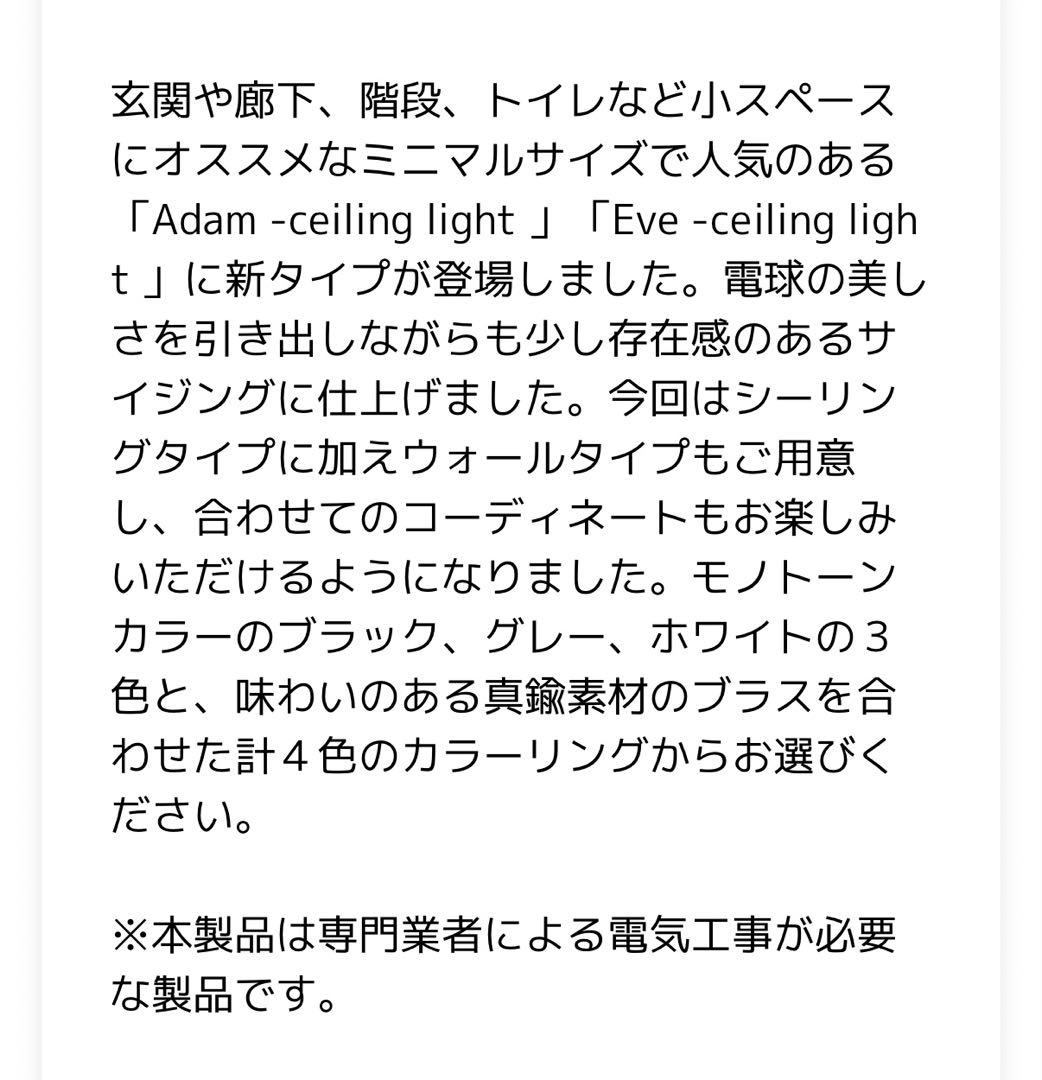 玄関や廊下、階段、トイレなど小スペース
にオススメなミニマルサイズで人気のある
「Adam -ceiling light 」「Eve -ceiling ligh
t 」に新タイプが登場しました。電球の美し
さを引き出しながらも少し存在感のあるサ
イジングに仕上げました。今回はシーリン
グタイプに加えウォールタイプもご用意
し、合わせてのコーディネートもお楽しみ
いただけるようになりました。モノトーン
カラーのブラック、グレー、ホワイトの３
色と、味わいのある真鍮素材のブラスを合
わせた計４色のカラーリングからお選びく
ださい。
※本製品は専門業者による電気工事が必要
な製品です。